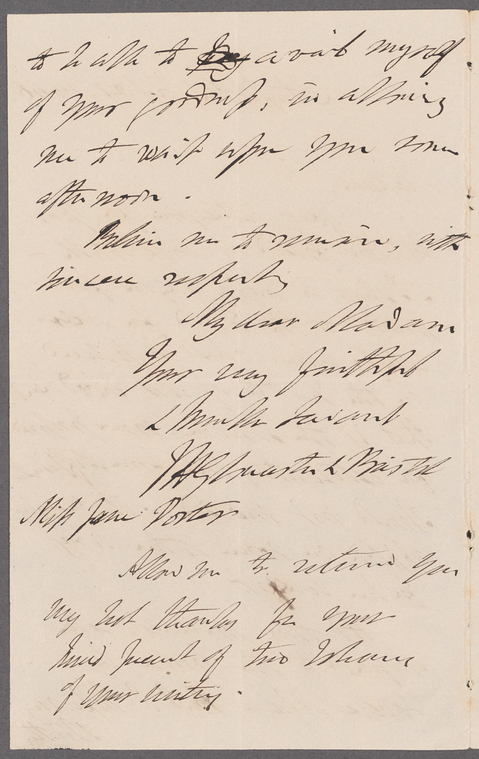 to be able to avail myself
of your goodness, in allowing
me to wait upon you some
afternoon.
Believe me to remain, with
sincere respect,
My dear Madam
Your very faithful
& humble servant
J H Gloucester & Bristol
Miss Jane Porter
Allow me to return you
my best thanks for your
kind present of two volumes
of your writing.